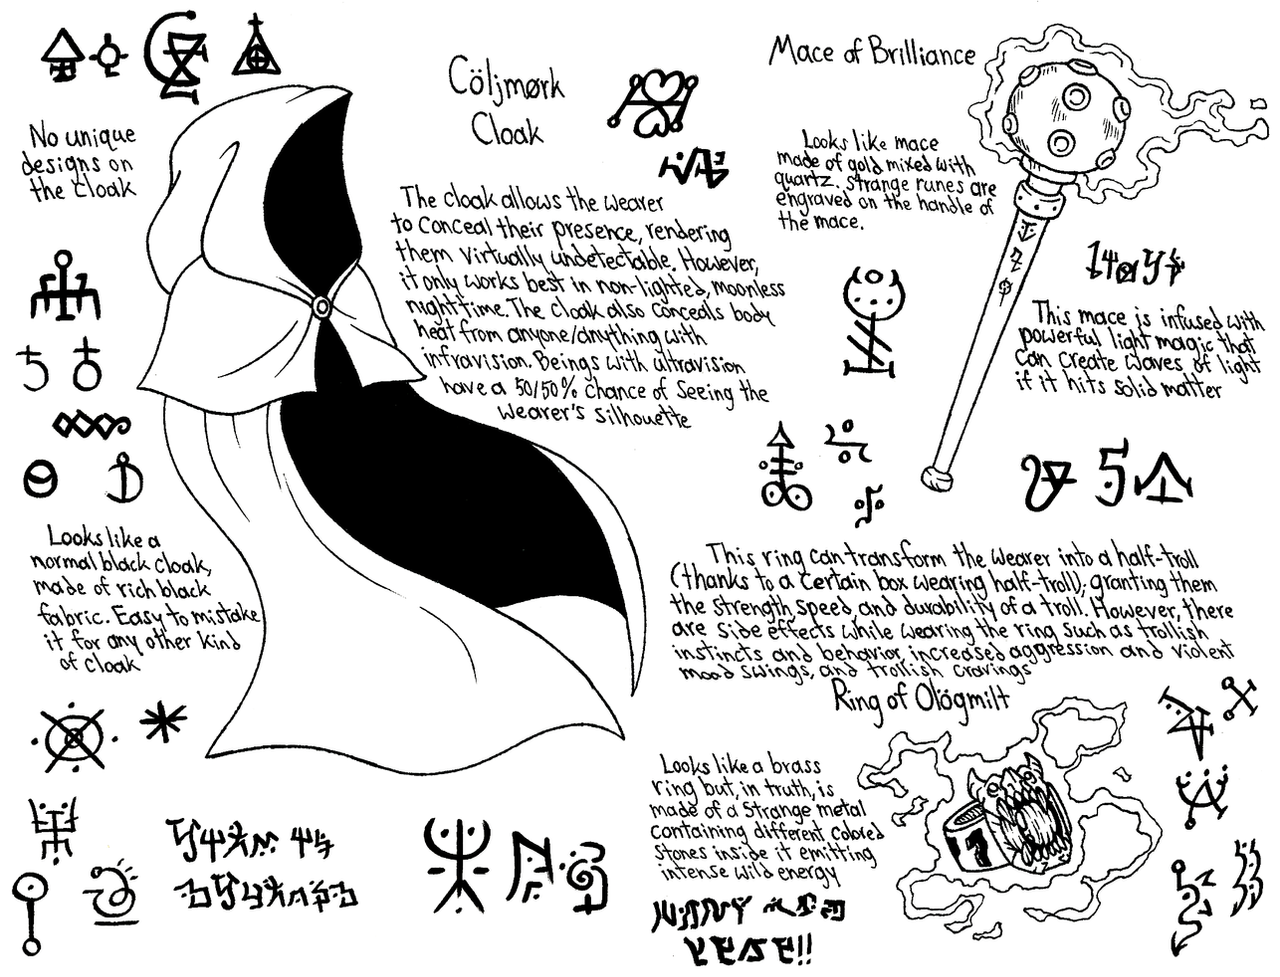 Cöljmørk
Cloak
No unique
designs on
the cloak
The cloak allows the wearer
to conceal their presence, rendering
them virtually undetectable. However,
it only works best in non-lighted, moonless
nighttime. The cloak also conceals body
heat from anyone/anything with
infravision. Beings with ultravision
have a 50/50% chance of seeing the
wearer's silhouette
Looks like a
normal black cloak,
made of rich black
fabric. Easy to mistake
it for any other kind
of cloak
Mace of Brilliance
Looks like mace
made of gold mixed with
quartz. Strange runes are
engraved on the handle of
the mace.
This mace is infused with
powerful light magic that
can create waves of light
if it hits solid matter
This ring can transform the wearer into a half-troll
(thanks to a certain box wearing half-troll); granting them
the strength, speed, and durability of a troll. However, there
are side effects while wearing the ring such as trollish
instincts and behavior, increased aggression and violent
mood swings, and trollish cravings
Ring of Olögmilt
Looks like a brass
ring but, in truth, is
made of a strange metal
containing different colored
stones inside it emitting
intense wild energy